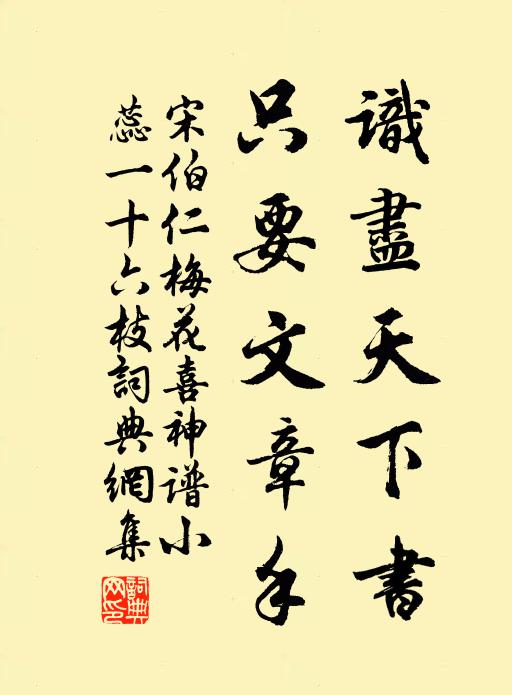 識盡天下書
只要文章手
宋伯仁梅花喜神谱小
蕊一十六枝詞典網集
詞典网印